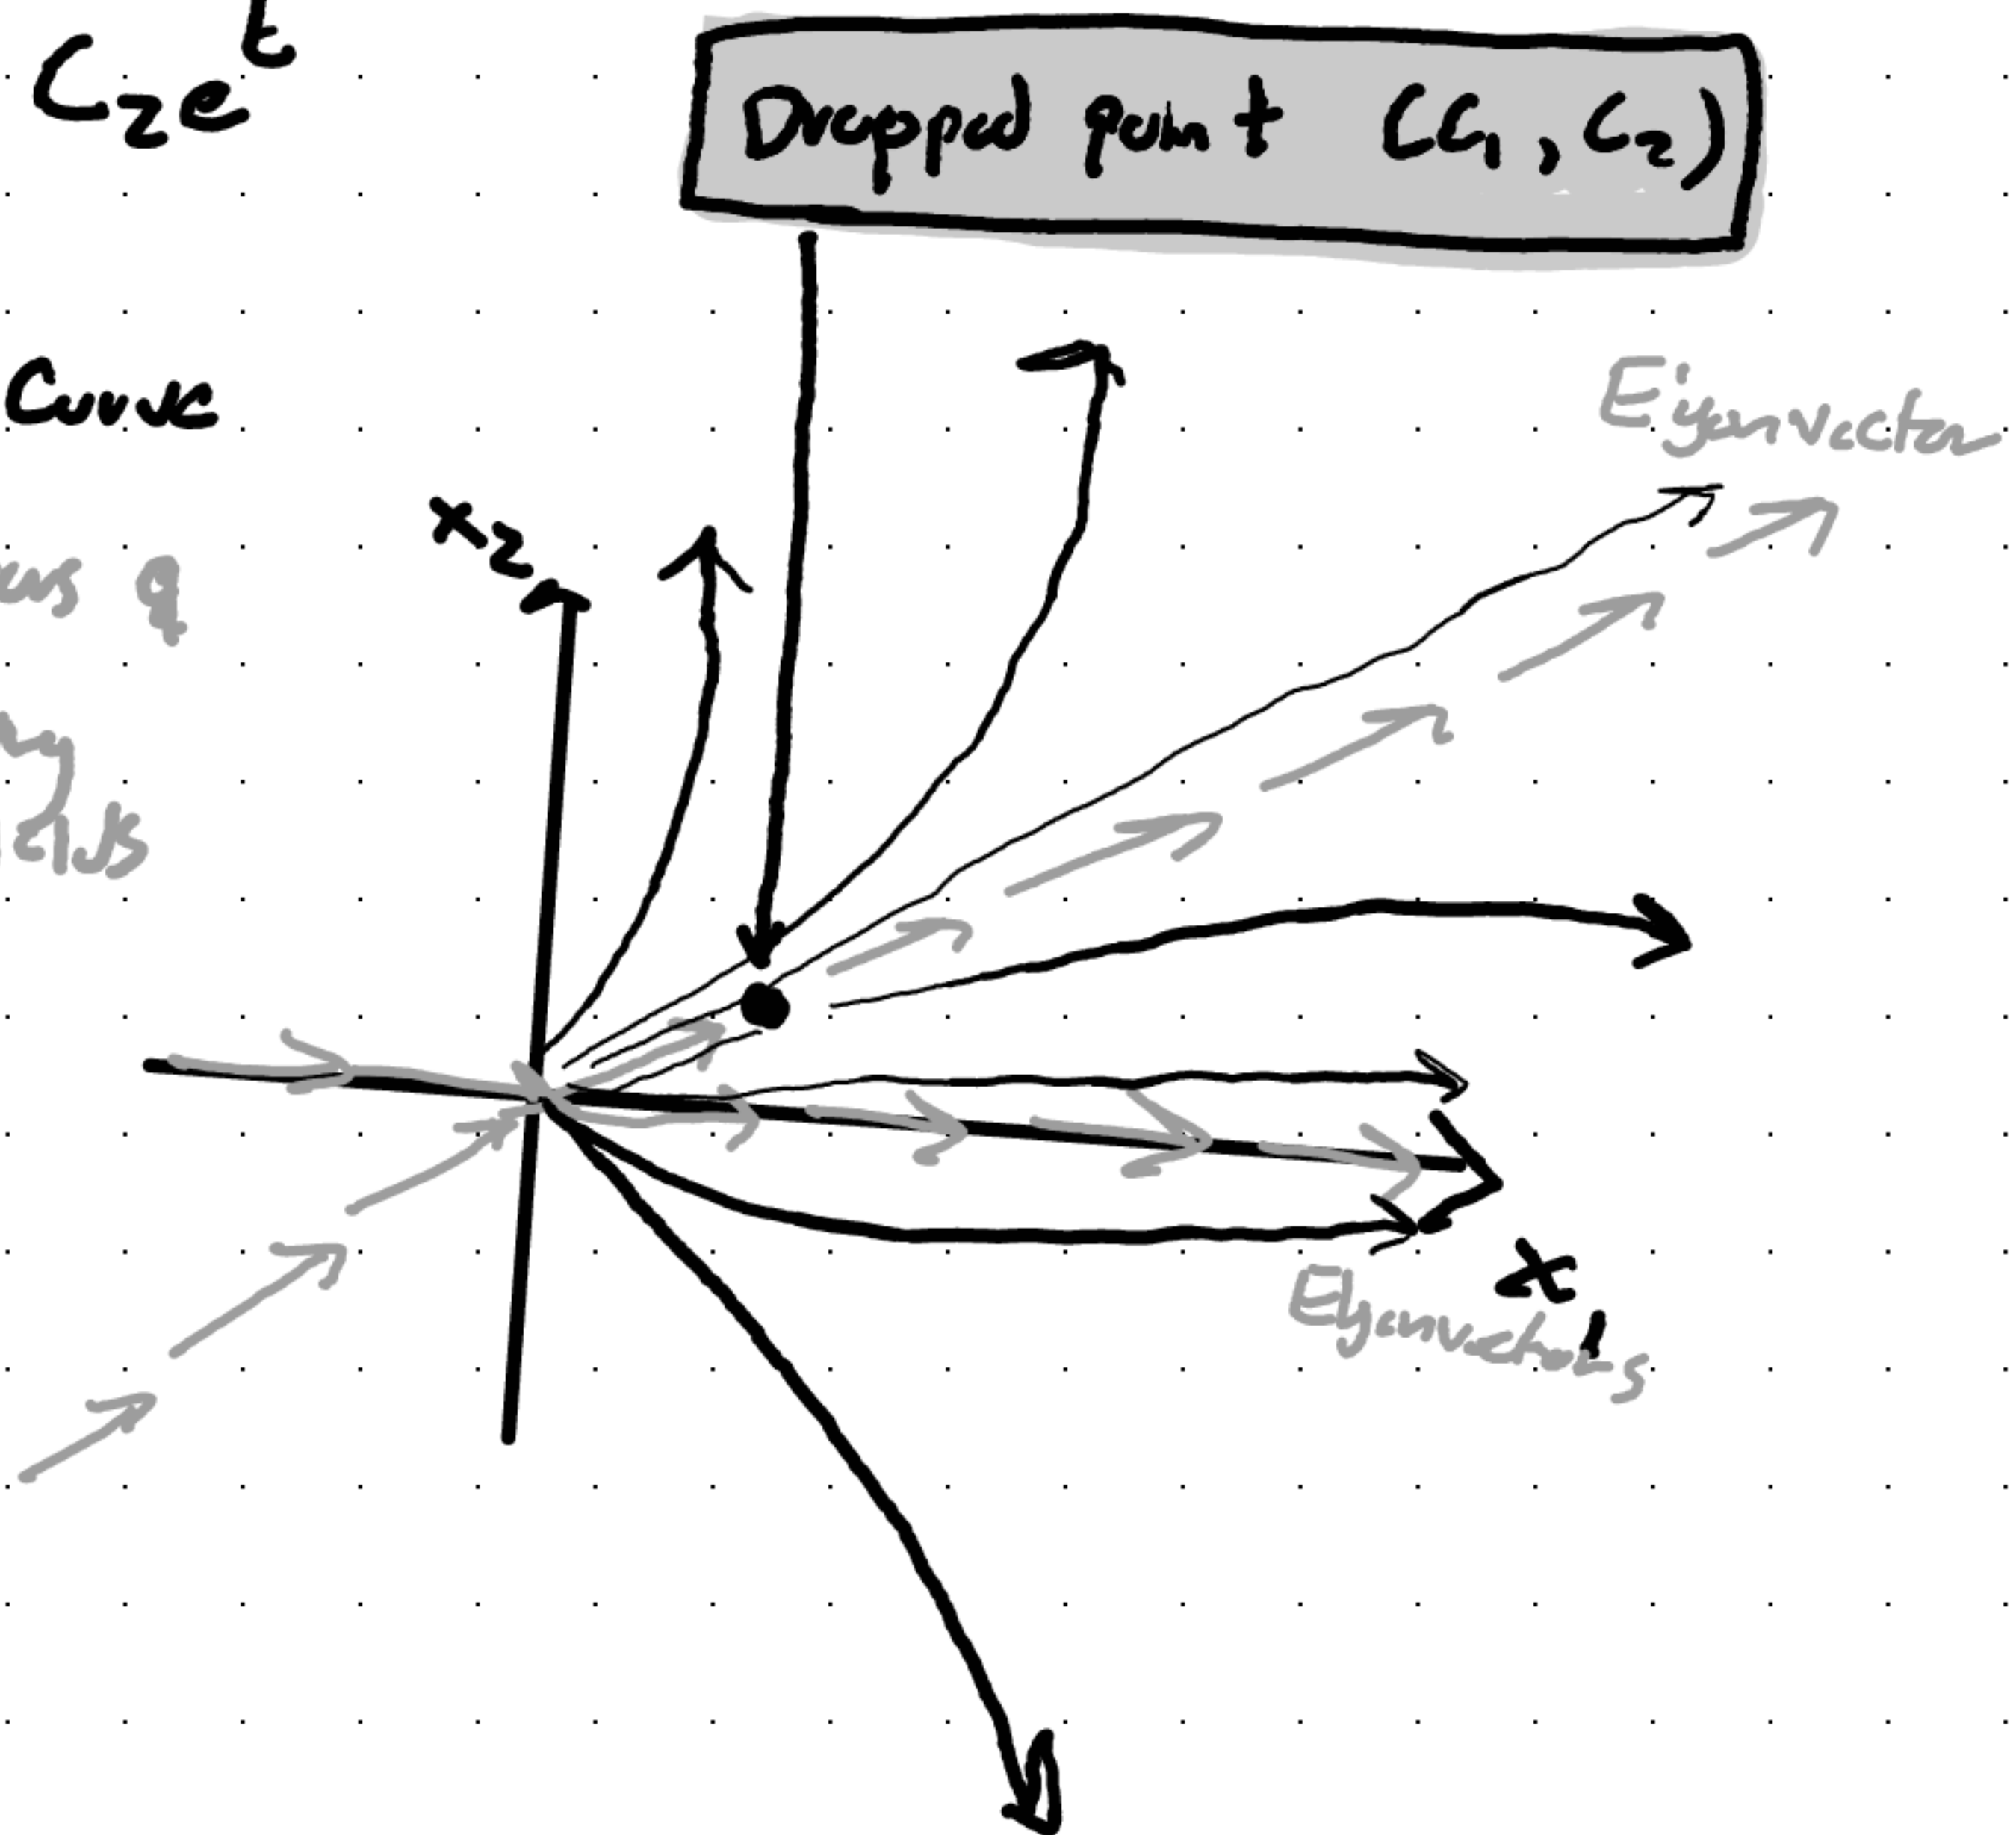 C₂eᵗ
Dropped point (C₁, C₂)
Curve
Eigenvector
x₂
x₁
Eigenvectors